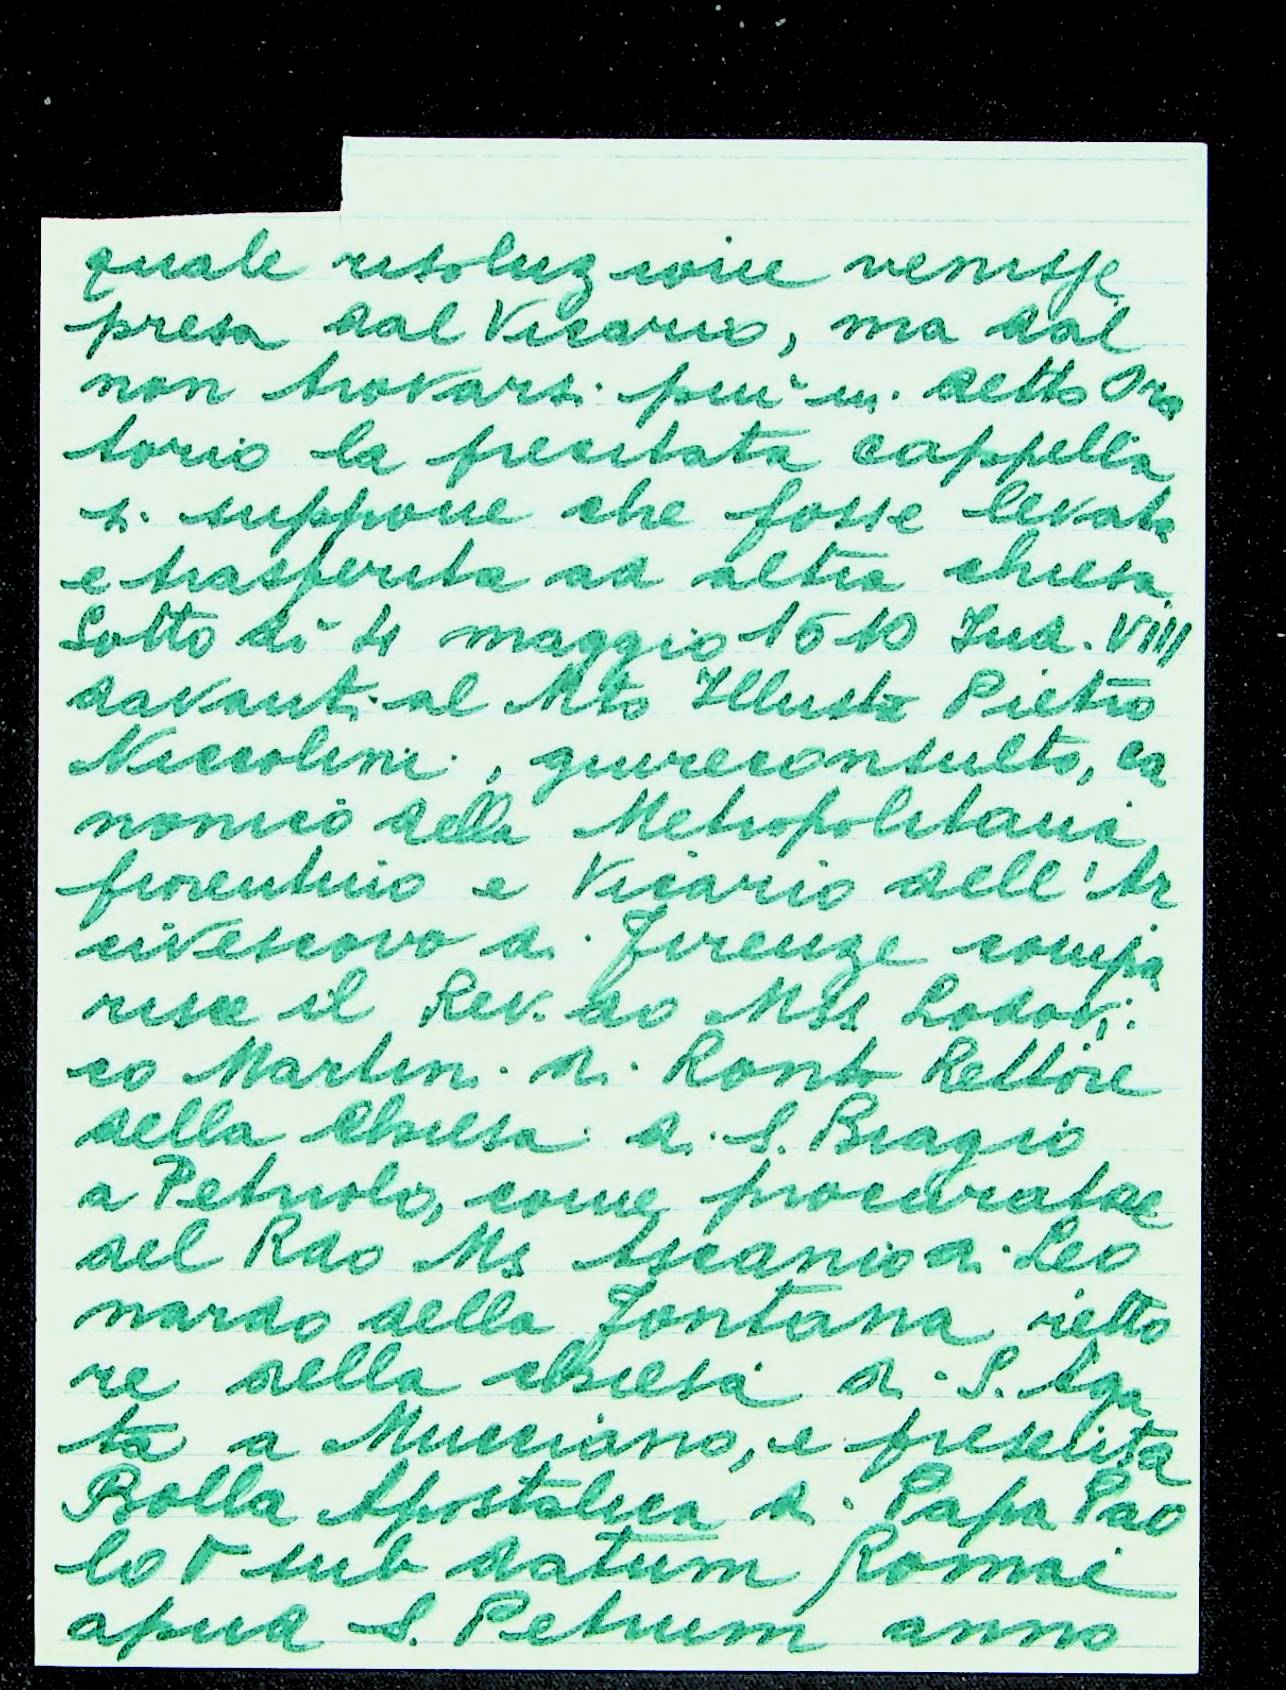 quale risoluzione venisse
presa dal Vicario, ma dal
non trovarsi più in detto Ora
torio la precitata cappella
si suppone che fosse levata
e trasferita ad altra chiesa.
Sotto dì 4 maggio 1610 Ind. VIII
davanti al Mto Illustre Pietro
Niccolini, giureconsulto, ca
nonico della Metropolitana
fiorentino e Vicario dell'Ar
civescovo di Firenze compa
risce il Rev.do Mss Lodovi
co Martini di Ronta Rettore
della Chiesa di S. Biagio
a Petriolo, come procuratore
del Rdo Ms Ascanio di Leo
nardo della Fontana retto
re della chiesa di S. Aga
ta a Mucciano, e presenta
Bolla Apostolica di Papa Pao
lo V sub datum Romae
apud S. Petrum anno